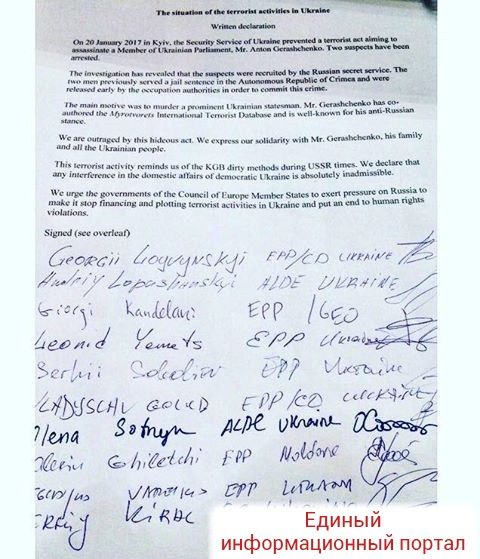 The situation of the terrorist activities in Ukraine
Written declaration
On 20 January 2017 in Kyiv, the Security Service of Ukraine prevented a terrorist act aiming to
assassinate a Member of Ukrainian Parliament, Mr. Anton Gerashchenko. Two suspects have been
arrested.
The investigation has revealed that the suspects were recruited by the Russian secret service. The
two men previously served a jail sentence in the Autonomous Republic of Crimea and were
released early by the occupation authorities in order to commit this crime.
The main motive was to murder a prominent Ukrainian statesman. Mr. Gerashchenko has co-
authored the Myrotvorets International Terrorist Database and is well-known for his anti-Russian
stance.
We are outraged by this hideous act. We express our solidarity with Mr. Gerashchenko, his family
and all the Ukrainian people.
This terrorist activity reminds us of the KGB dirty methods during USSR times. We declare that
any interference in the domestic affairs of democratic Ukraine is absolutely inadmissible.
We urge the governments of the Council of Europe Member States to exert pressure on Russia to
make it stop financing and plotting terrorist activities in Ukraine and put an end to human rights
violations.
Signed (see overleaf)
Georgii Logvynskyi EPP/CD UKRAINE
Andriy Lopushanskyi ALDE UKRAINE
Giorgi Kandelaki EPP /GEO
Leonid Yemets EPP Ukraine
Serhii Sobolev EPP Ukraine
VLADYSLAV GOLUB EPP/CD UKRAINE
Olena Sotnyk ALDE Ukraine
Valeriu Ghiletchi EPP Moldova
EPP
KIRAL
Единый
информационный портал